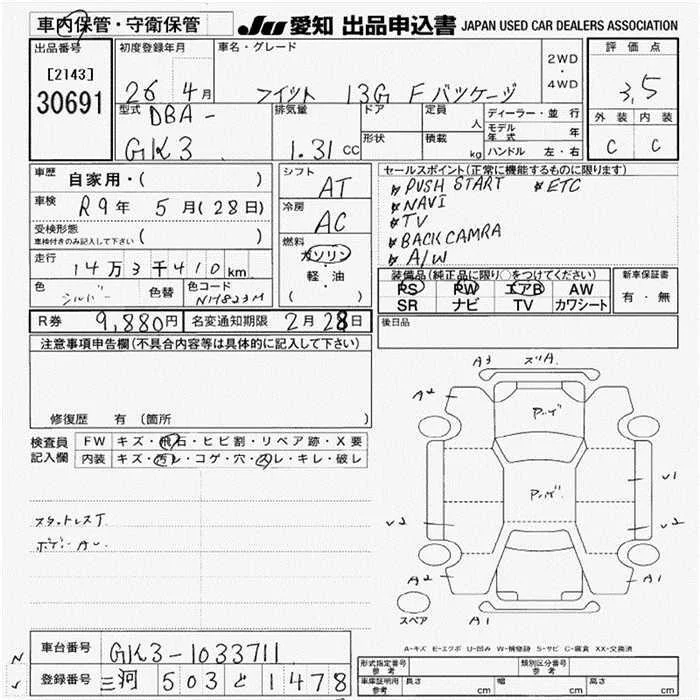 車内保管・守衛保管
JU 愛知 出品申込書 JAPAN USED CAR DEALERS ASSOCIATION
出品番号 初度登録年月 車名・グレード 2WD ・ 4WD 評価点
[2143]
30691 26 4月 フイット 13G F パッケージ 3,5
型式 排気量 ドア 定員 人 ディーラー・並行 外装 内装
DBA-
GK3 1.31 CC 形状 積載 kg モデル年式 年 C C
ハンドル 左・右
車歴 自家用・( ) シフト AT セールスポイント(正常に機能するものに限ります)
PUSH START ETC
車検 R9年 5月(28日) 冷房 AC NAVI
TV
受検形態 車検付きのみ記入して下さい ( ) 燃料 ガソリン・軽・油 ( ) BACK CAMRA
A/W
走行 14万3千410km 装備品(純正品に限り○をつけてください) 新車保証書
色 シルバー 色替 色コード NH823M PS PW エアB AW 有・無
SR ナビ TV カワシート
R券 9,880円 名変通知期限 2月28日 後日品
注意事項申告欄(不具合内容等は具体的に記入して下さい)
修復歴 有(箇所
検査員記入欄 FW キズ・飛石・ヒビ割・リペア跡・X要
内装 キズ・汚レ・コゲ・穴・スレ・キレ・破レ
スタットレスT
ボデーAU
A3 ズリA
A2
アハゲ
アハゲ
V1
V2 V2
A2 A1
スペア A1
A-キズ E-エクボ U-凹み W-補修跡 S-サビ C-腐食 XX-交換済
車台番号 GK3-1033711
登録番号 三河 503 と 1478
形式指定番号 参考 類別区分番号 参考
車庫証明用 参考 長さ cm 幅 cm 高さ cm